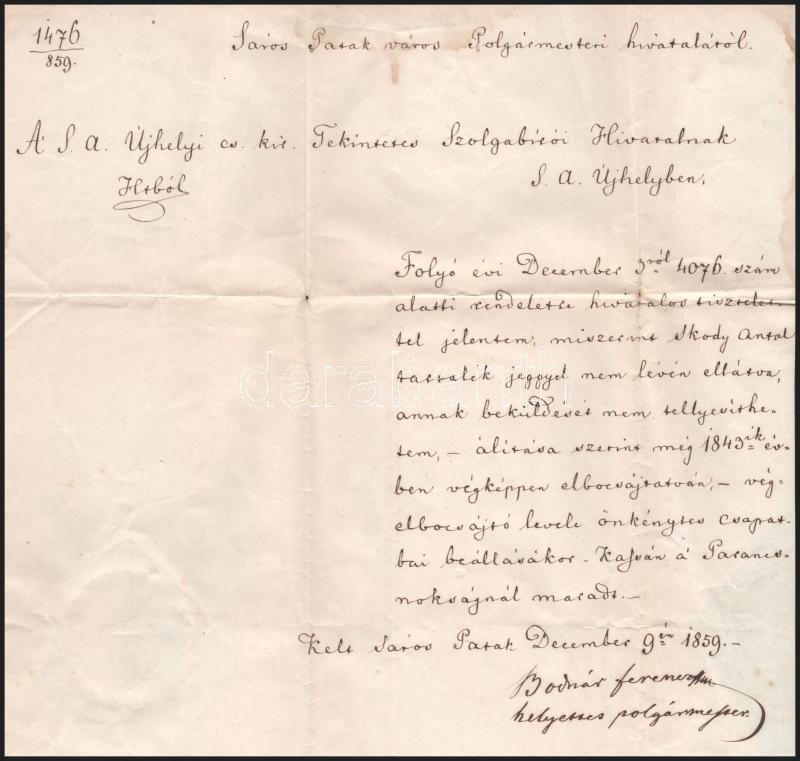 1476
859.
Sáros Patak város Polgármesteri hivatalától.
A' S. A. Újhelyi cs. kir. Tekintetes Szolgabírói Hivatalnak
Htból
S. A. Újhelyben.
Folyó évi December 3ról 4076. szám
alatti rendeletre hivatalos tisztelet-
tel jelentem, miszerint Skody Antal
tartalék jeggyel nem lévén ellátva,
annak beküldését nem tellyesithe-
tem, – álitása szerint még 1843ik év-
ben végképpen elbocsájtatván, – vég-
elbocsájtó levele önkénytes csapat-
bai beállásákor – Kassán á Parancs-
nokságnál maradt. –
Kelt Sáros Patak December 9én 1859. –
Bodnár ferencz
helyettes polgármester.
darabanth